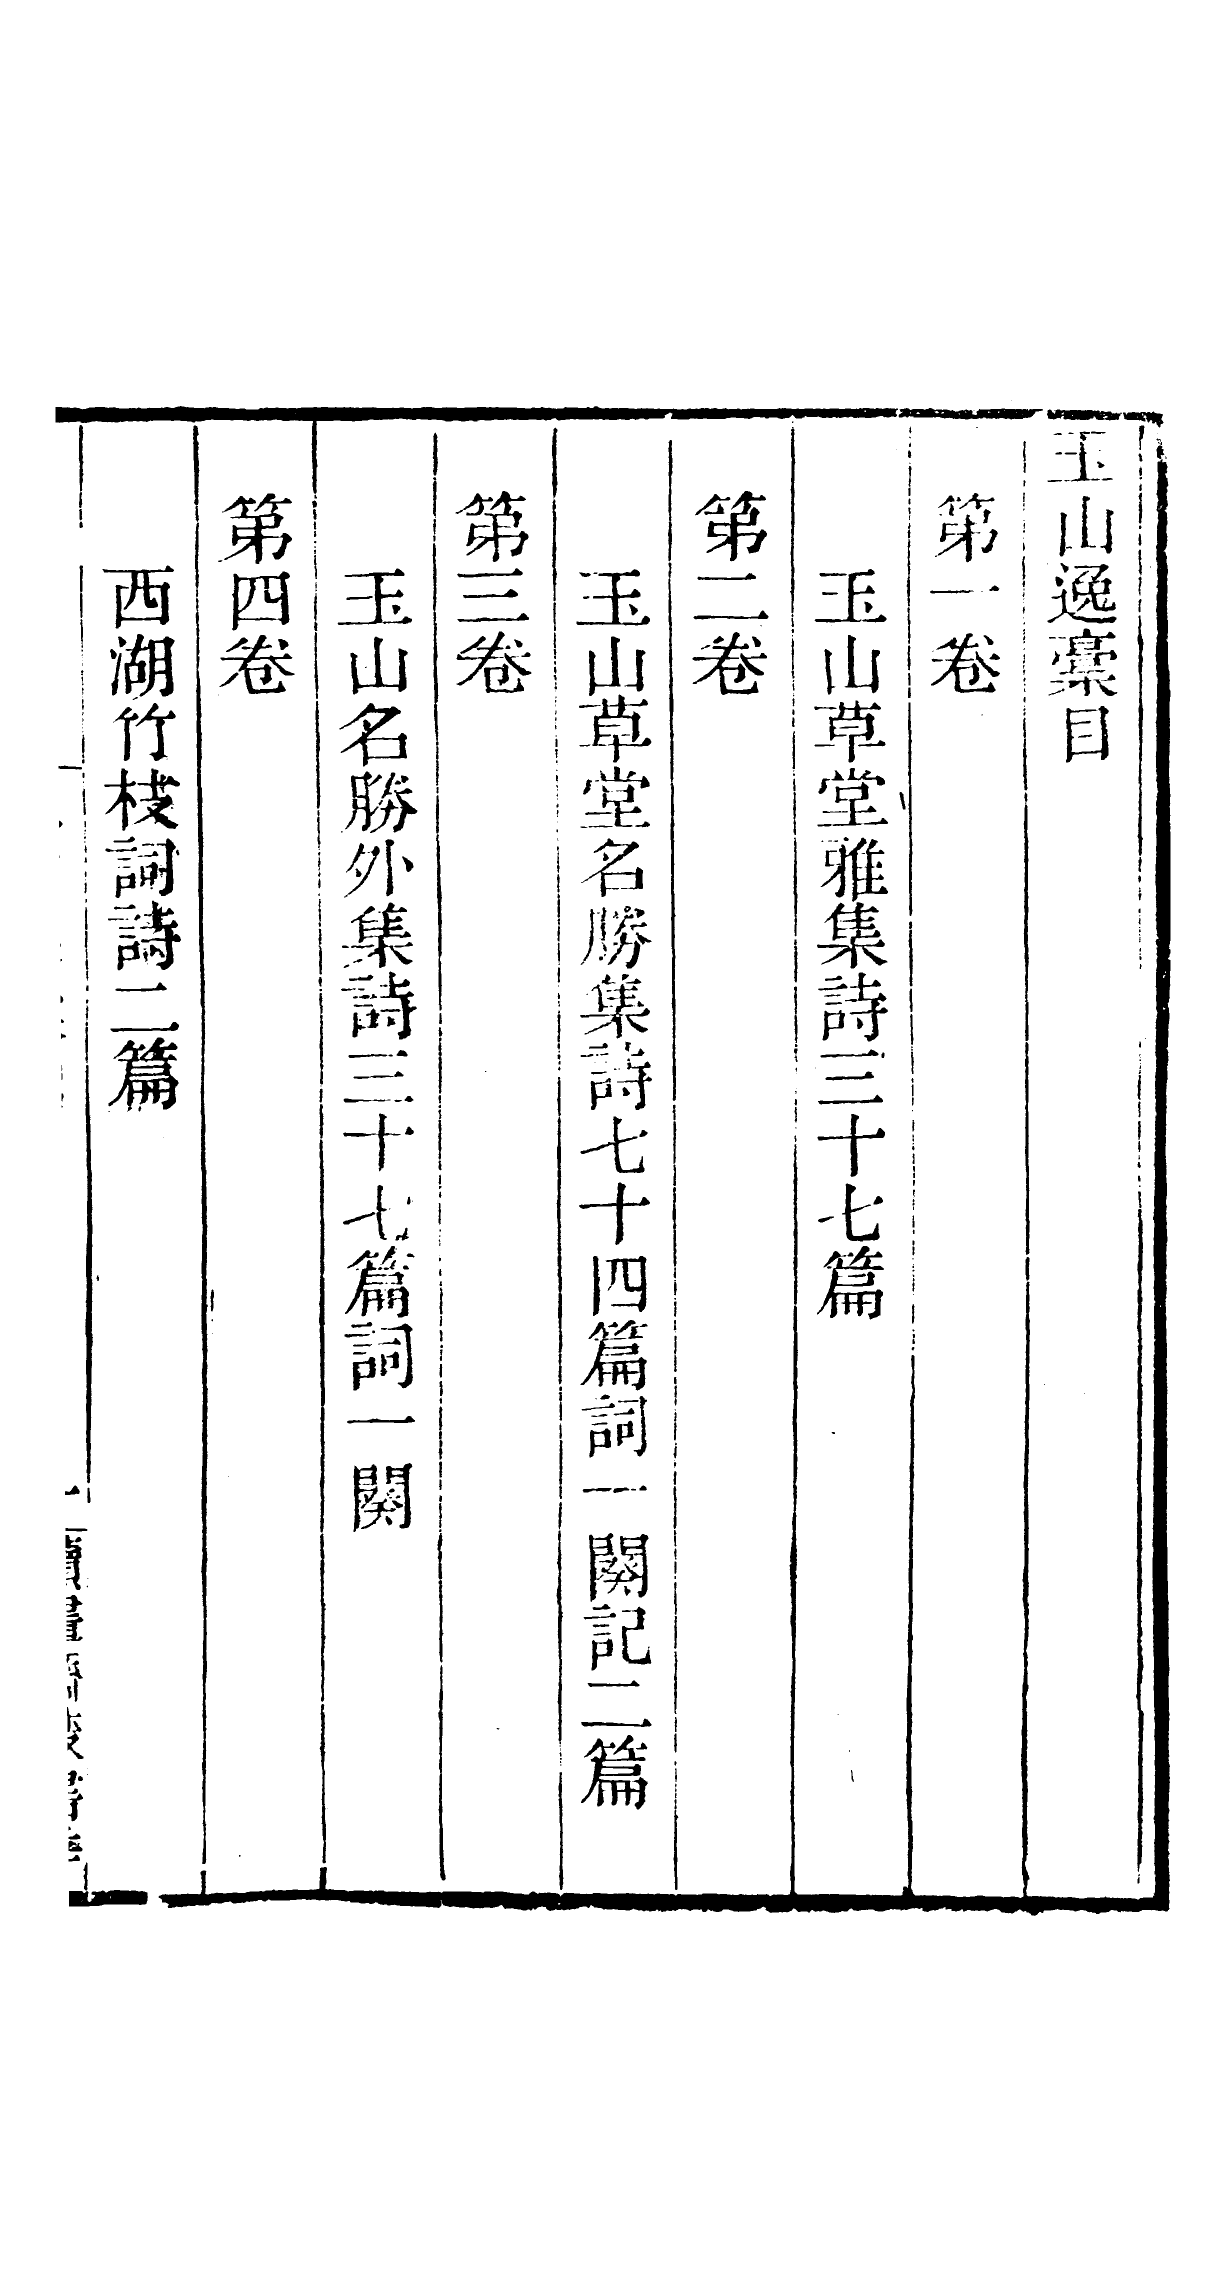 玉山逸稾目
第一卷
玉山草堂雅集詩三十七篇
第二卷
玉山草堂名勝集詩七十四篇詞一闋記二篇
第三卷
玉山名勝外集詩三十七篇詞一闋
第四卷
西湖竹枝詞詩二篇